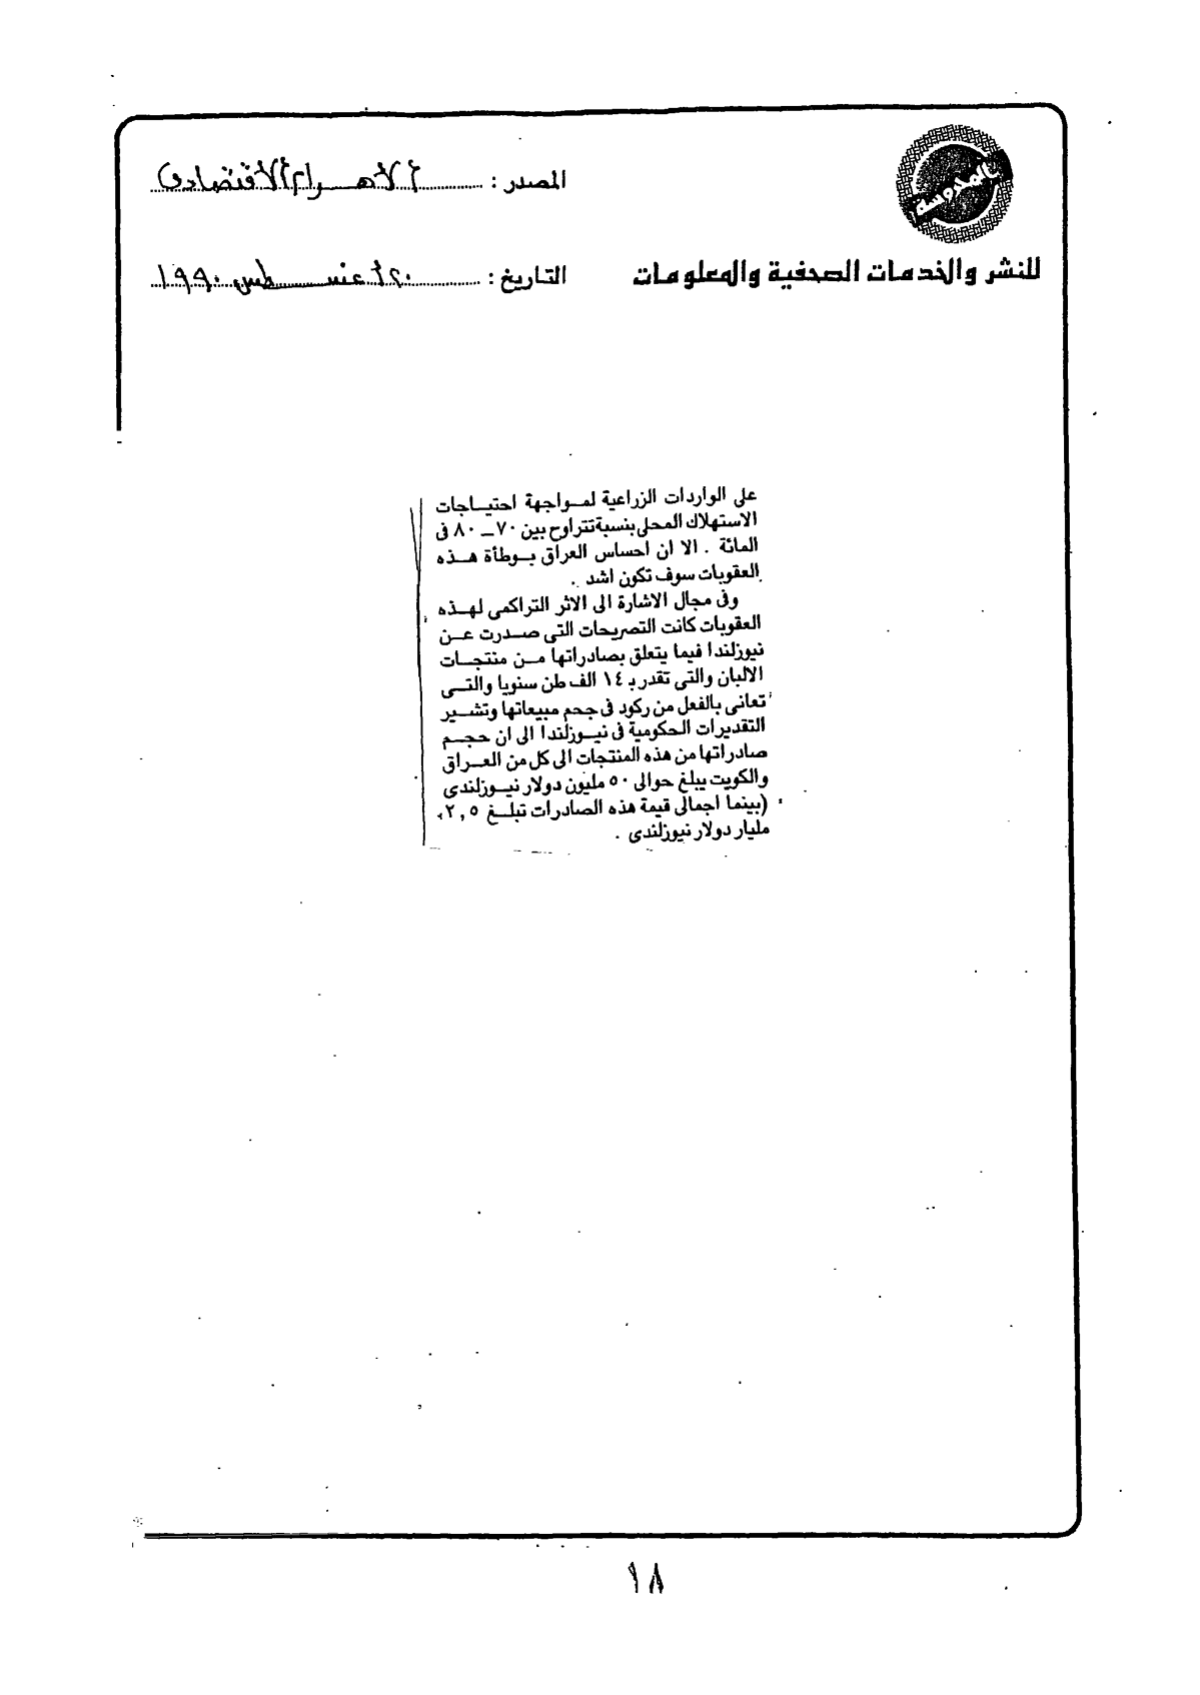 المصدر : الأهرام الاقتصادى
للنشر والخدمات الصحفية والمعلومات
التاريخ : ٢٠ أغسطس ١٩٩٠
على الواردات الزراعية لمواجهة احتياجات
الاستهلاك المحلى بنسبة تتراوح بين ٧٠ ــ ٨٠ فى
المائة . الا ان احساس العراق بوطأة هذه
العقوبات سوف تكون اشد .
وفى مجال الاشارة الى الاثر التراكمى لهذه
العقوبات كانت التصريحات التى صدرت عن
نيوزلندا فيما يتعلق بصادراتها من منتجات
الالبان والتى تقدر بـ ١٤ الف طن سنويا والتى
تعانى بالفعل من ركود فى جحم مبيعاتها وتشير
التقديرات الحكومية فى نيوزلندا الى ان حجم
صادراتها من هذه المنتجات الى كل من العراق
والكويت يبلغ حوالى ٥٠ مليون دولار نيوزلندى
(بينما اجمالى قيمة هذه الصادرات تبلغ ٢,٥
مليار دولار نيوزلندى .
١٨